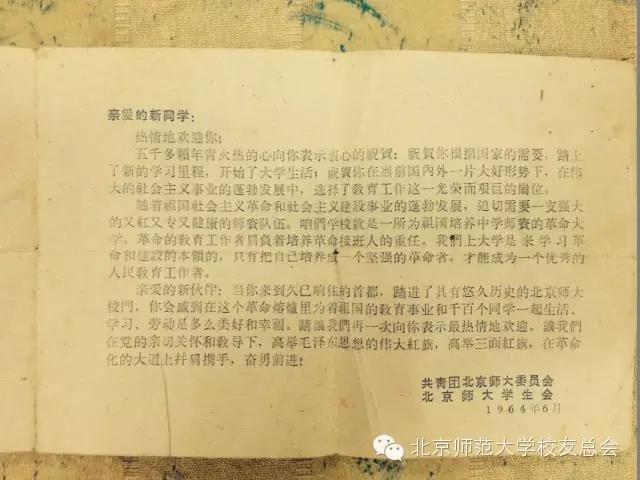 亲爱的新同学：
热情地欢迎你！
五千多顆年青火热的心向你表示衷心的祝賀：祝賀你根据国家的需要，踏上
了新的学习里程，开始了大学生活；祝賀你在当前国内外一片大好形势下，在伟
大的社会主义事业的蓬勃发展中，选择了教育工作这一光荣而艰巨的崗位。
随着祖国社会主义革命和社会主义建設事业的蓬勃发展，迫切需要一支强大
的又紅又专又健康的师資队伍。咱們学校就是一所为祖国培养中学师資的革命大
学。革命的教育工作者肩負着培养革命接班人的重任。我們上大学是来学习革
命和建設的本領的，只有把自己培养成一个坚强的革命者，才能成为一个优秀的
人民教育工作者。
亲爱的新伙伴：当你来到久已响往的首都，踏进了具有悠久历史的北京师大
校門，你会感到在这个革命熔爐里为着祖国的教育事业和千百个同学一起生活、
学习、劳动是多么美好和幸福。請讓我們再一次向你表示最热情地欢迎，讓我們
在党的亲切关怀和教导下，高举毛泽东思想的伟大紅旗，高举三面紅旗，在革命
化的大道上幷肩携手，奋勇前进！
共青团北京师大委員会
北京师大学生会
1964年6月
北京师范大学校友总会